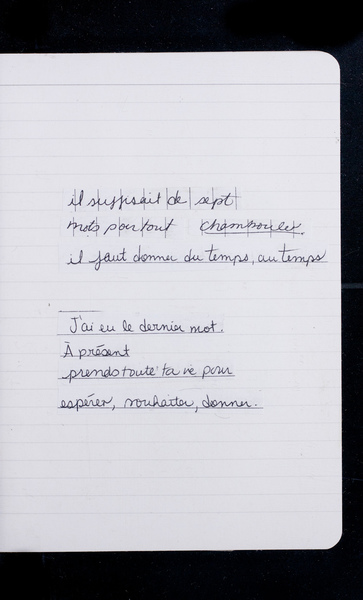 il suffisait de sept
mots pour tout chambouler.
il faut donner du temps, au temps
J'ai eu le dernier mot.
À présent
prends toute ta vie pour
espérer, souhaiter, donner.